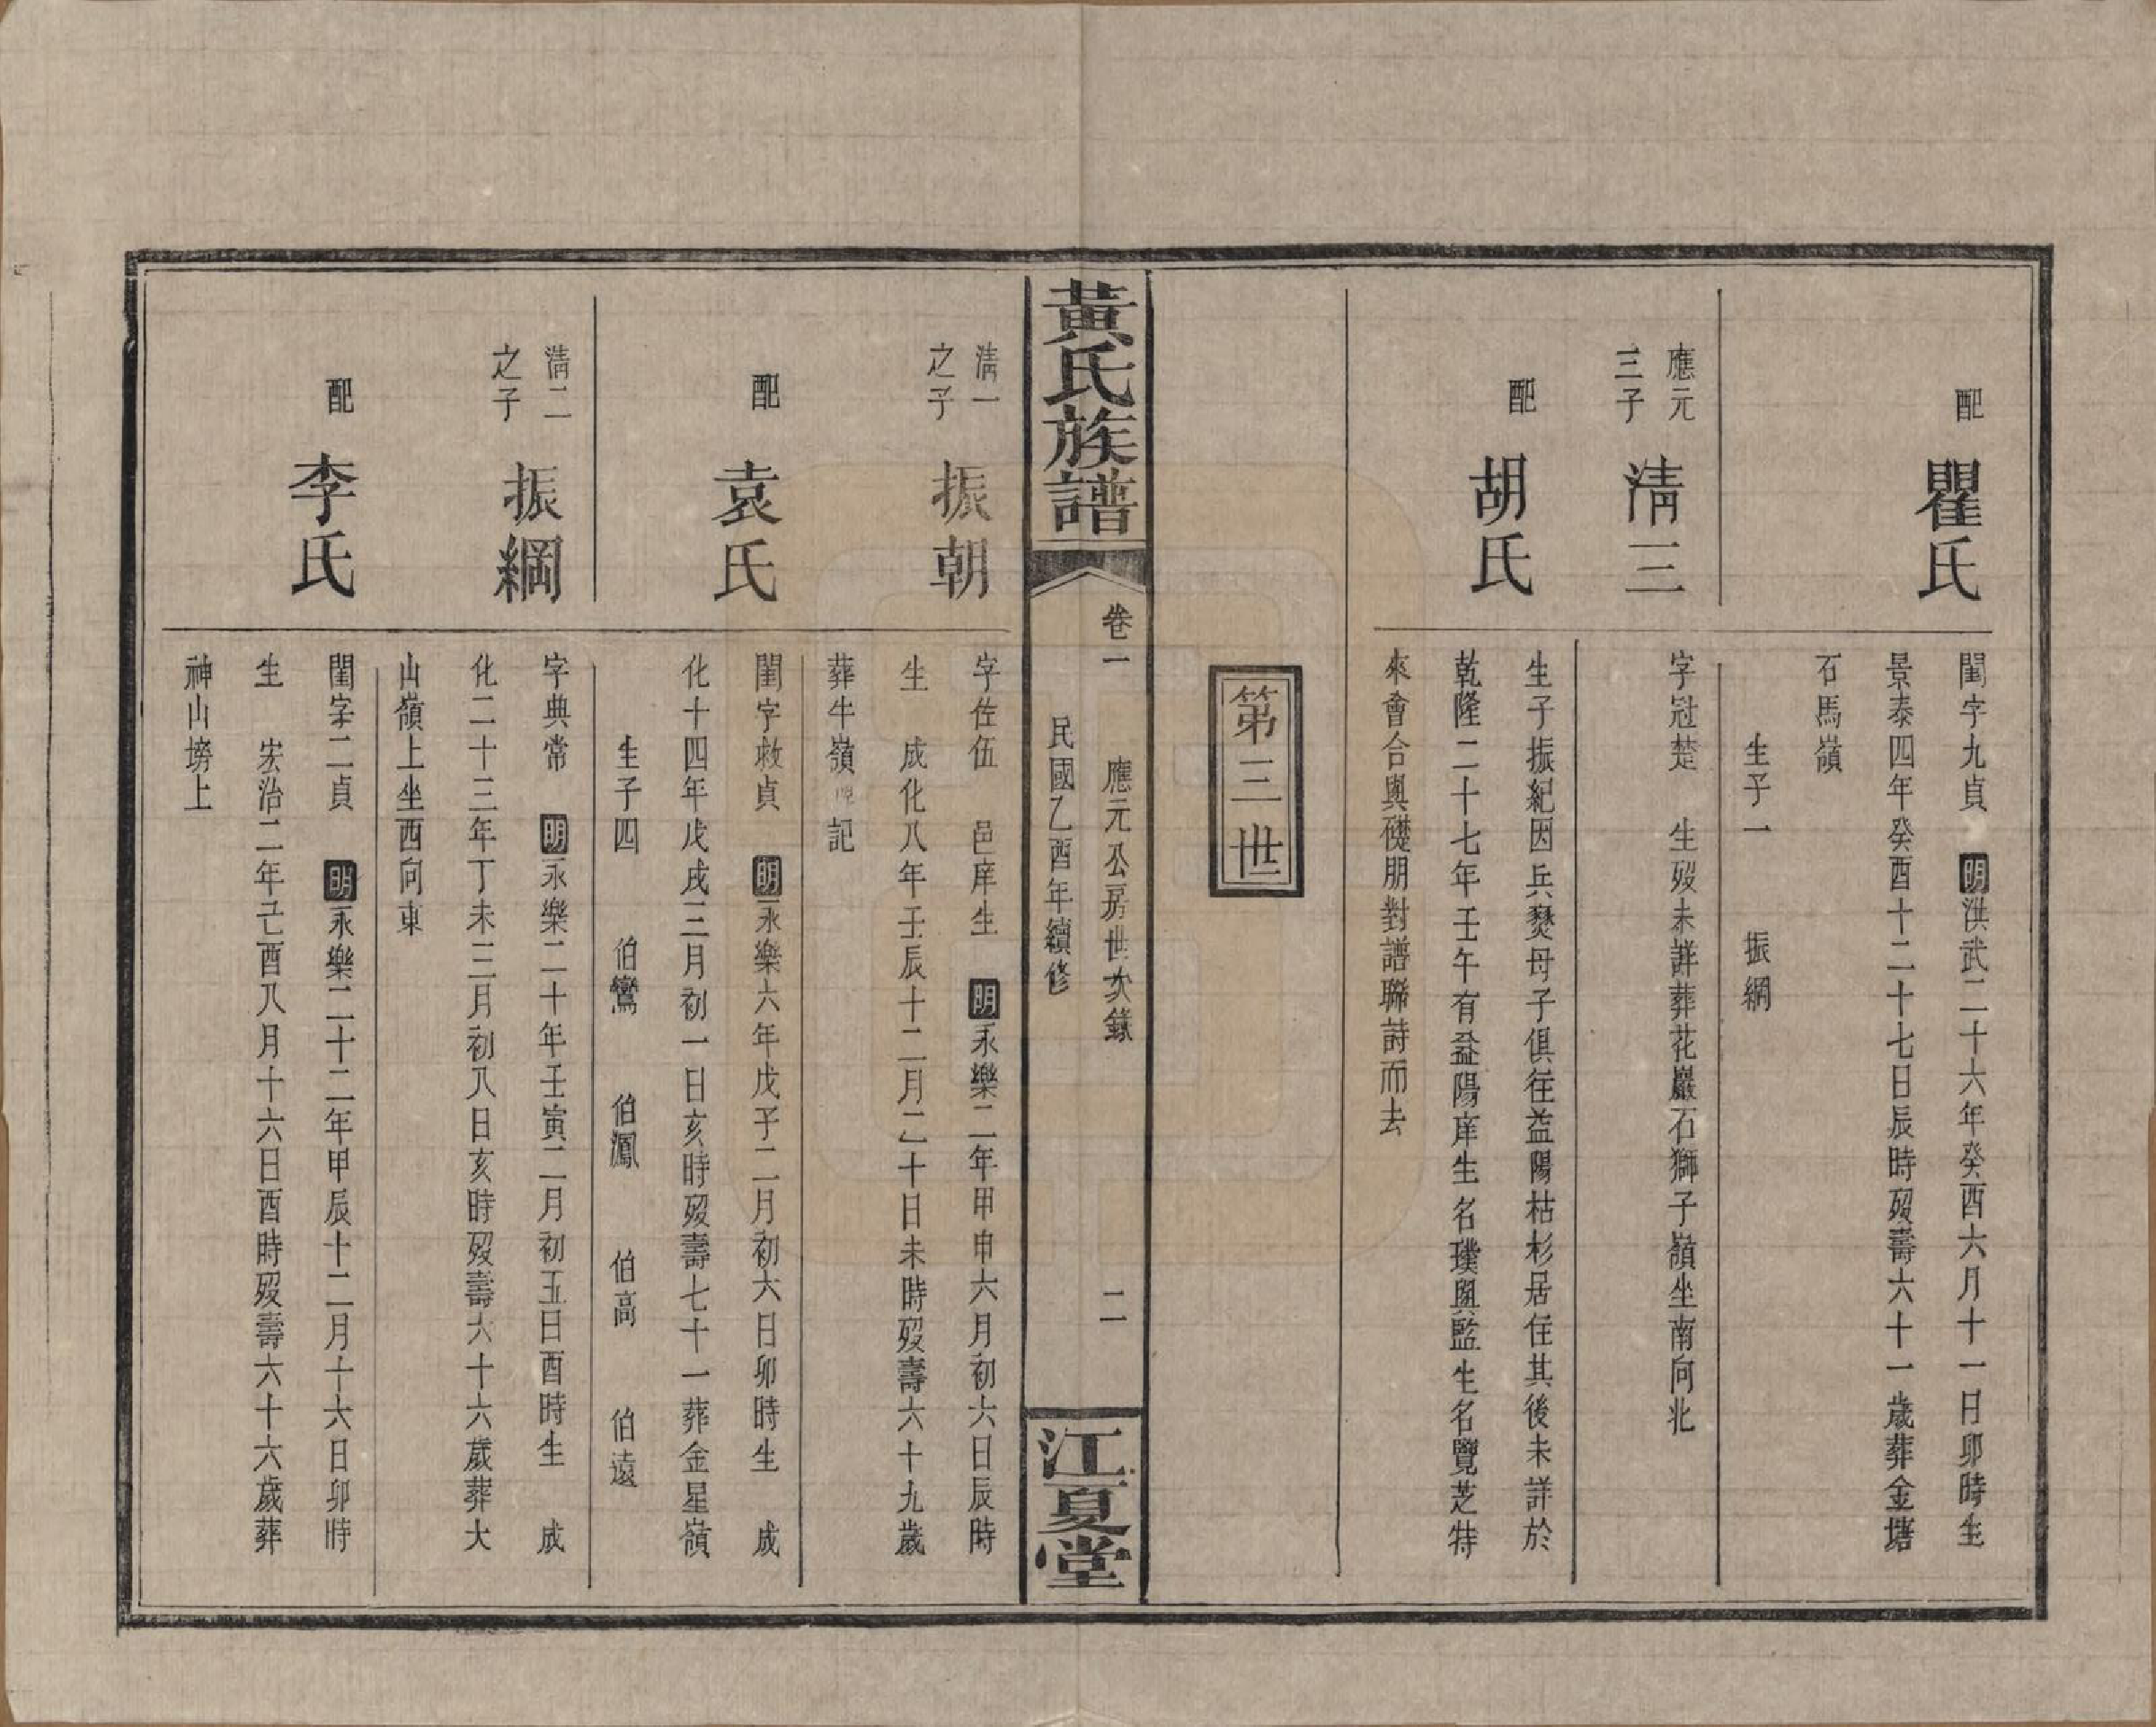 配
瞿氏
閨字九貞 明洪武二十六年癸酉六月十一日卯時生
景泰四年癸酉十二十七日辰時歿壽六十一歲葬金塘
石馬嶺
生子一 振綱
應元
三子
淸三
字冠楚 生歿未詳葬花巖石獅子嶺坐南向北
配
胡氏
生子振紀因兵燹母子俱往益陽枯杉居住其後未詳於
乾隆二十七年壬午有益陽庠生名璞與監生名覽芝特
來會合與礎朋對譜聯詩而去
第三世
黃氏族譜
卷一 應元公房世次錄 二
民國乙酉年續修
江夏堂
淸一
之子
振朝
字佐伍 邑庠生 明永樂二年甲申六月初六日辰時
生 成化八年壬辰十二月二十日未時歿壽六十九歲
葬牛嶺 記
配
袁氏
閨字救貞 明永樂六年戊子二月初六日卯時生 成
化十四年戊戌三月初一日亥時歿壽七十一葬金星嶺
生子四 伯鸞 伯鳳 伯高 伯遠
淸二
之子
振綱
字典常 明永樂二十年壬寅二月初五日酉時生 成
化二十三年丁未三月初八日亥時歿壽六十六歲葬大
山嶺上坐西向東
配
李氏
閨字二貞 明永樂二十二年甲辰十二月十六日卯時
生 宏治二年己酉八月十六日酉時歿壽六十六歲葬
神山塝上